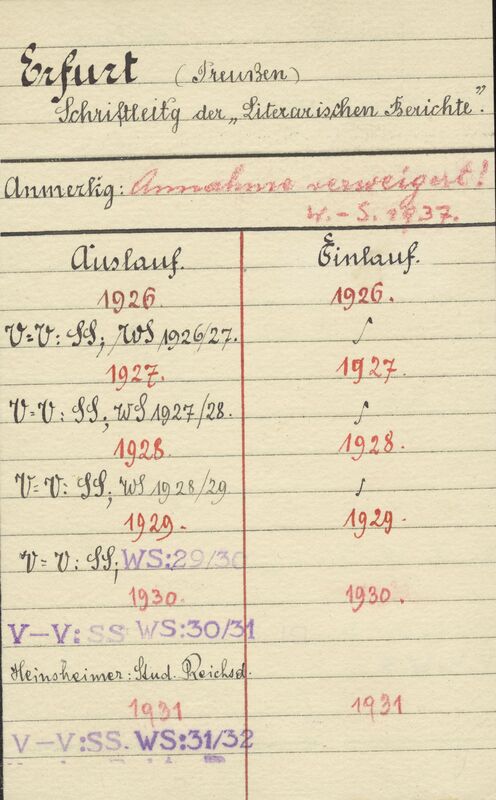 Erfurt (Preußen)
Schriftleitg der „Literarischen Berichte”.
Anmerkg: Annahme verweigert!
W.-S. 1937.
Auslauf. Einlauf.
1926 1926.
V=V: SS; WS 1926/27. ſ
1927. 1927
V=V: SS; WS 1927/28. ſ
1928. 1928
V=V: SS; WS 1928/29 ſ
1929. 1929.
V=V: SS; WS:29/30
1930. 1930.
V-V: SS WS:30/31
Heinsheimer: Stud. Reichsd.
1931 1931
V-V:SS. WS:31/32